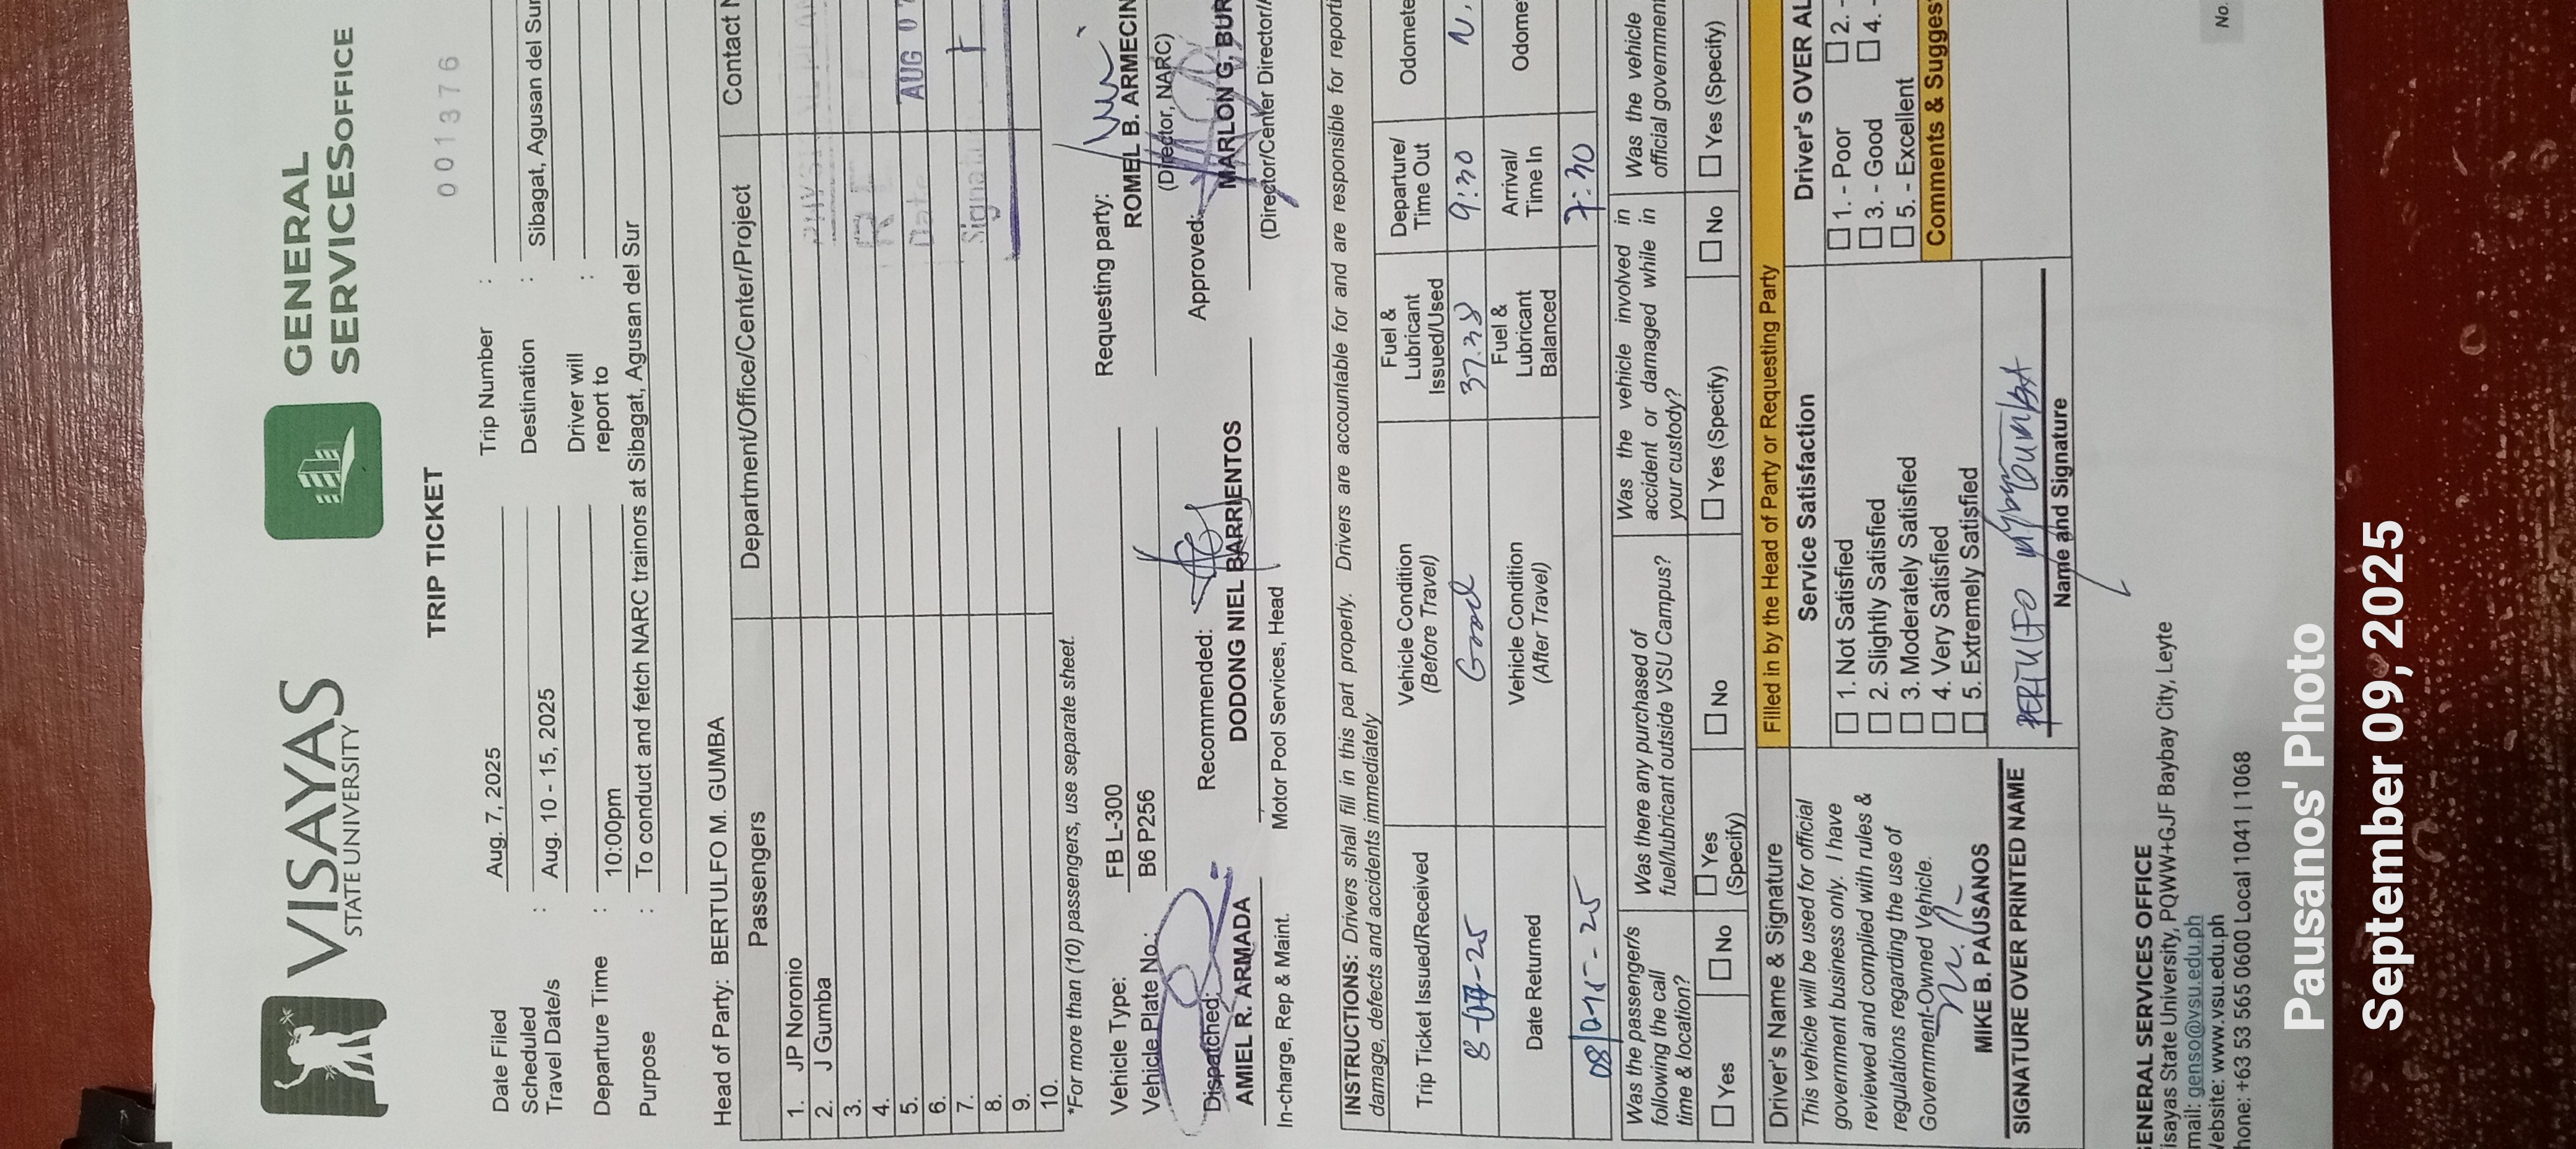 VISAYAS
STATE UNIVERSITY
GENERAL
SERVICESOFFICE
001376
TRIP TICKET
Date Filed Aug. 7, 2025 Trip Number :
Scheduled
Travel Date/s : Aug. 10 - 15, 2025 Destination : Sibagat, Agusan del Sur
Departure Time : 10:00pm Driver will
report to :
Purpose : To conduct and fetch NARC trainors at Sibagat, Agusan del Sur
Head of Party: BERTULFO M. GUMBA
Passengers Department/Office/Center/Project Contact
1. JP Noronio
2. J Gumba
3.
4.
5. Date AUG 07
6.
7.
8.
9.
10.
*For more than (10) passengers, use separate sheet.
Vehicle Type: FB L-300
Vehicle Plate No.: B6 P256
Requesting party:
ROMEL B. ARMECIN
(Director, NARC)
Dispatched: Recommended: Approved:
AMIEL R. ARMADA DODONG NIEL BARRIENTOS MARLON G. BUR
In-charge, Rep & Maint. Motor Pool Services, Head (Director/Center Director/
INSTRUCTIONS: Drivers shall fill in this part properly. Drivers are accountable for and are responsible for reporti
damage, defects and accidents immediately
Trip Ticket Issued/Received Vehicle Condition
(Before Travel) Fuel &
Lubricant
Issued/Used Departure/
Time Out Odomete
Good 37.38 9:30 N.
Date Returned Vehicle Condition
(After Travel) Fuel &
Lubricant
Balanced Arrival/
Time In Odome
7:30
Was the passenger/s
following the call
time & location?
Yes No
Was there any purchased of
fuel/lubricant outside VSU Campus?
Yes
(Specify) No
Was the vehicle involved in
accident or damaged while in
your custody?
Yes (Specify) No
Was the vehicle
official governmen
Yes (Specify)
Driver's Name & Signature
This vehicle will be used for official
government business only. I have
reviewed and complied with rules &
regulations regarding the use of
Government-Owned Vehicle.
MIKE B. PAUSANOS
SIGNATURE OVER PRINTED NAME
Filled in by the Head of Party or Requesting Party
Service Satisfaction
1. Not Satisfied
2. Slightly Satisfied
3. Moderately Satisfied
4. Very Satisfied
5. Extremely Satisfied
BERTULFO
Name and Signature
Driver's OVER AL
1. - Poor 2. -
3. - Good 4. -
5. - Excellent
Comments & Sugges
GENERAL SERVICES OFFICE
isayas State University, PQWW+GJF Baybay City, Leyte
mail: genso@vsu.edu.ph
ebsite: www.vsu.edu.ph
hone: +63 53 565 0600 Local 1041 | 1068
No.
Pausanos' Photo
September 09, 2025